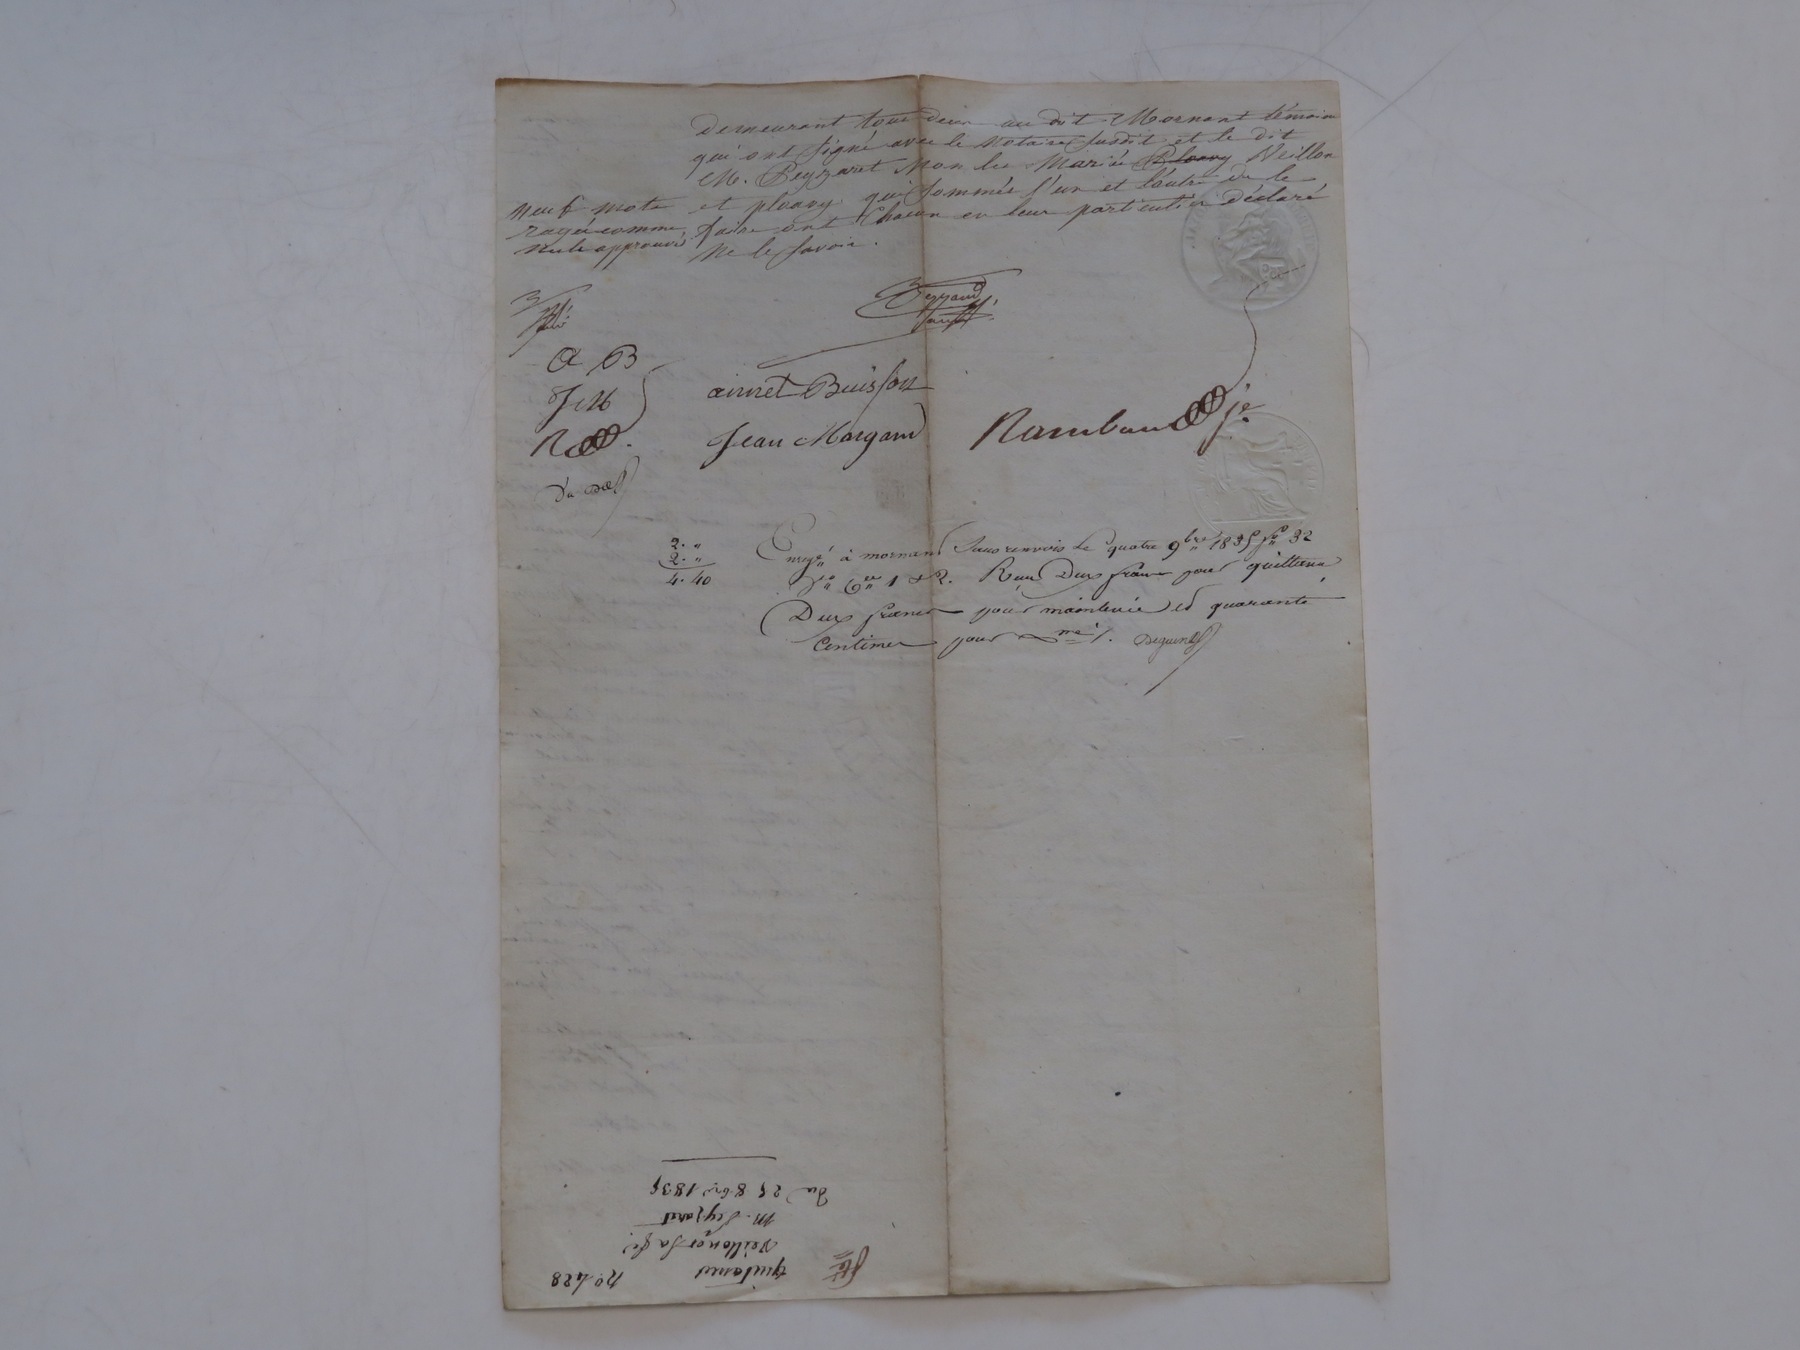 demeurant tous deux au dit Mornant témoins
qui ont signé avec le notaire susdit et le dit
M. Peyzaret non les Mariés Plvany Veillon
et plvany qui sommés l'un et l'autre de le
faire ont chacun en leur particulier déclaré
ne le savoir.
neuf mots
rayés comme
nuls approuvés
A B
J M
aimet Buisson
Jean Margand
Rambaud je
2. "
2. "
4. 40
Enregé à mornant sans renvois le quatre 9bre 1835 fo 32
Vo Ces 1 & 2. Reçu Deux francs pour quittance
Deux francs pour mainlevée et quarante
centimes pour Dme /.
No 428
quittance
Veillon et sa fe
M. Peyzaret
du 25 8bre 1835